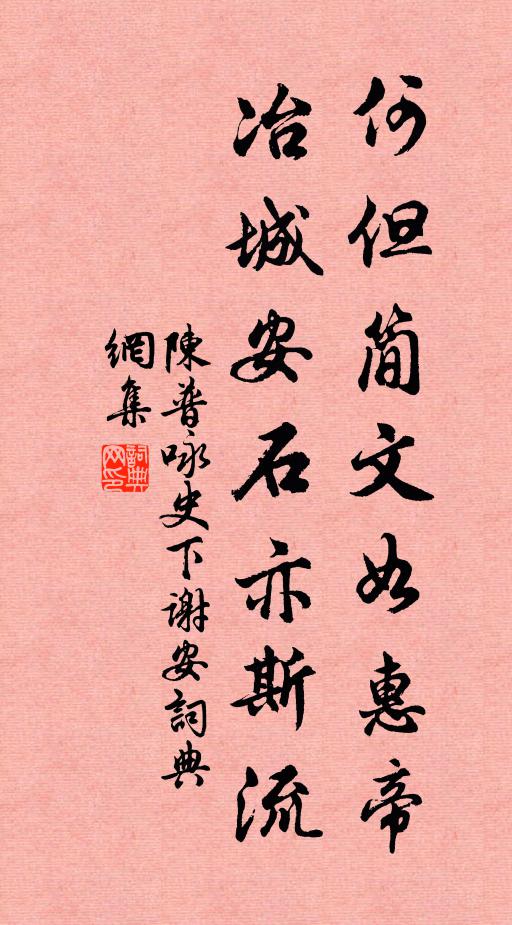 何但简文如惠帝
冶城安石亦斯流
陳普咏史下谢安詞典
網集
詞典
网印